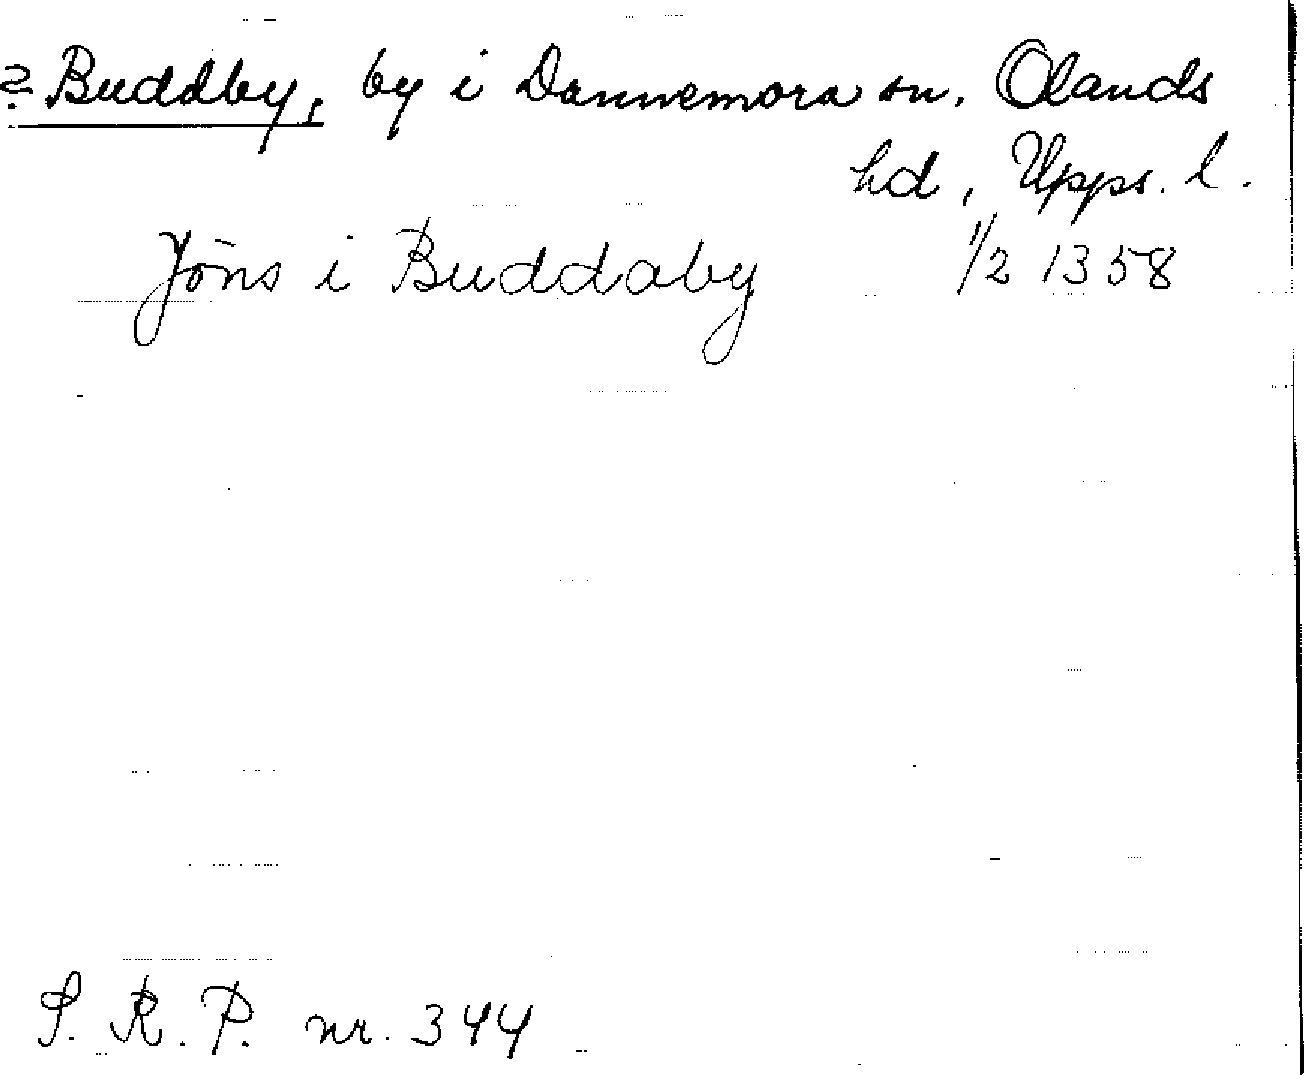 ? Buddby, by i Dannemora sn. Olands
hd, Upps. l.
Jöns i Buddaby 1/2 1358
S. R. P. nr. 344